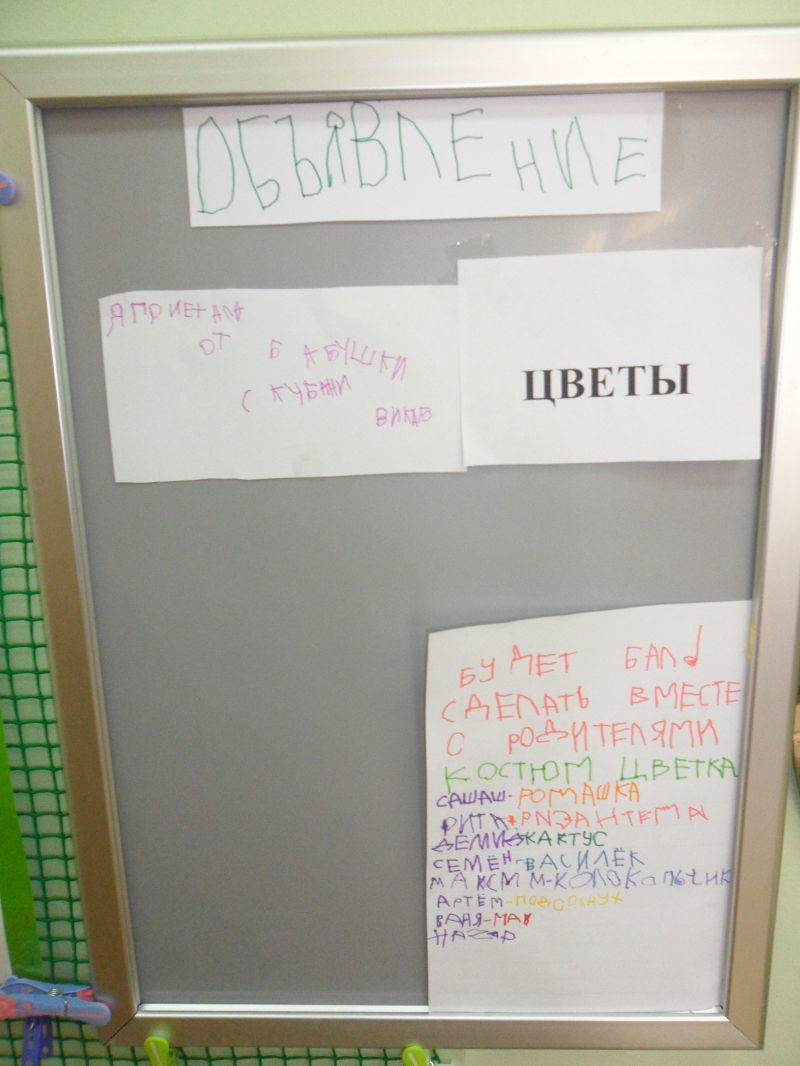 ОБЪЯВЛЕНИЕ
Я ПРИЕХАЛА
ОТ БАБУШКИ
С КУБАНИ
ЦВЕТЫ
БУДЕТ БАЛ
СДЕЛАТЬ ВМЕСТЕ
С РОДИТЕЛЯМИ
КОСТЮМ ЦВЕТКА
САШАШ-РОМАШКА
РИТА-РИЗАНТЕМА
ДЕМИД-КАКТУС
СЕМЁН-ВАСИЛЁК
МАКСИМ-КОЛОКАЛЬЧИК
АРТЁМ-ПОДСОЛНУХ
ВАНЯ-МАК